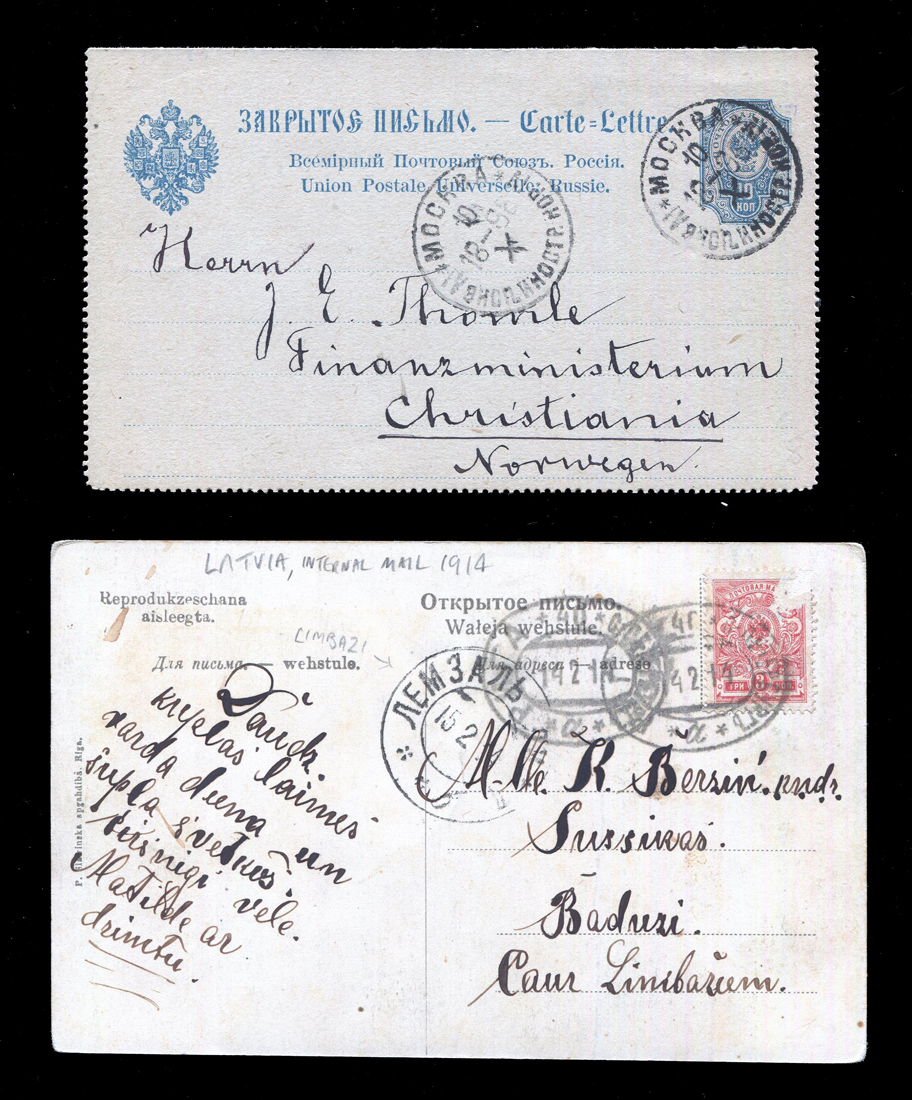 ЗАКРЫТОЕ ПИСЬМО. — Carte=Lettre
Всемірный Почтовый Союзъ. Россія.
Union Postale Universelle. Russie.
МОСКВА
10
X
МОСКВА
10
X
10
КОП
Herrn
J. E. Thomle
Finanzministerium
Christiania
Norwegen.
LATVIA, INTERNAL MAIL 1914
Reprodukzeschana
aisleegta.
Открытое письмо.
Walejā wehstule.
LIMBAZI
Для письма. — wehstule.
Для адреса — adrese
ПОЧТОВАЯ МА
ТРИ 3 КОП
14 2 14
4 2 14
ЛЕМЗАЛЬ
15 2
Daudz
kvēlas laimes
varda deena un
svetkos
sirsnigi vēlē.
Matilde ar
dzimtu.
Mlle K. Berzin
Sussikas.
Baduzi.
Caur Limbažiem.